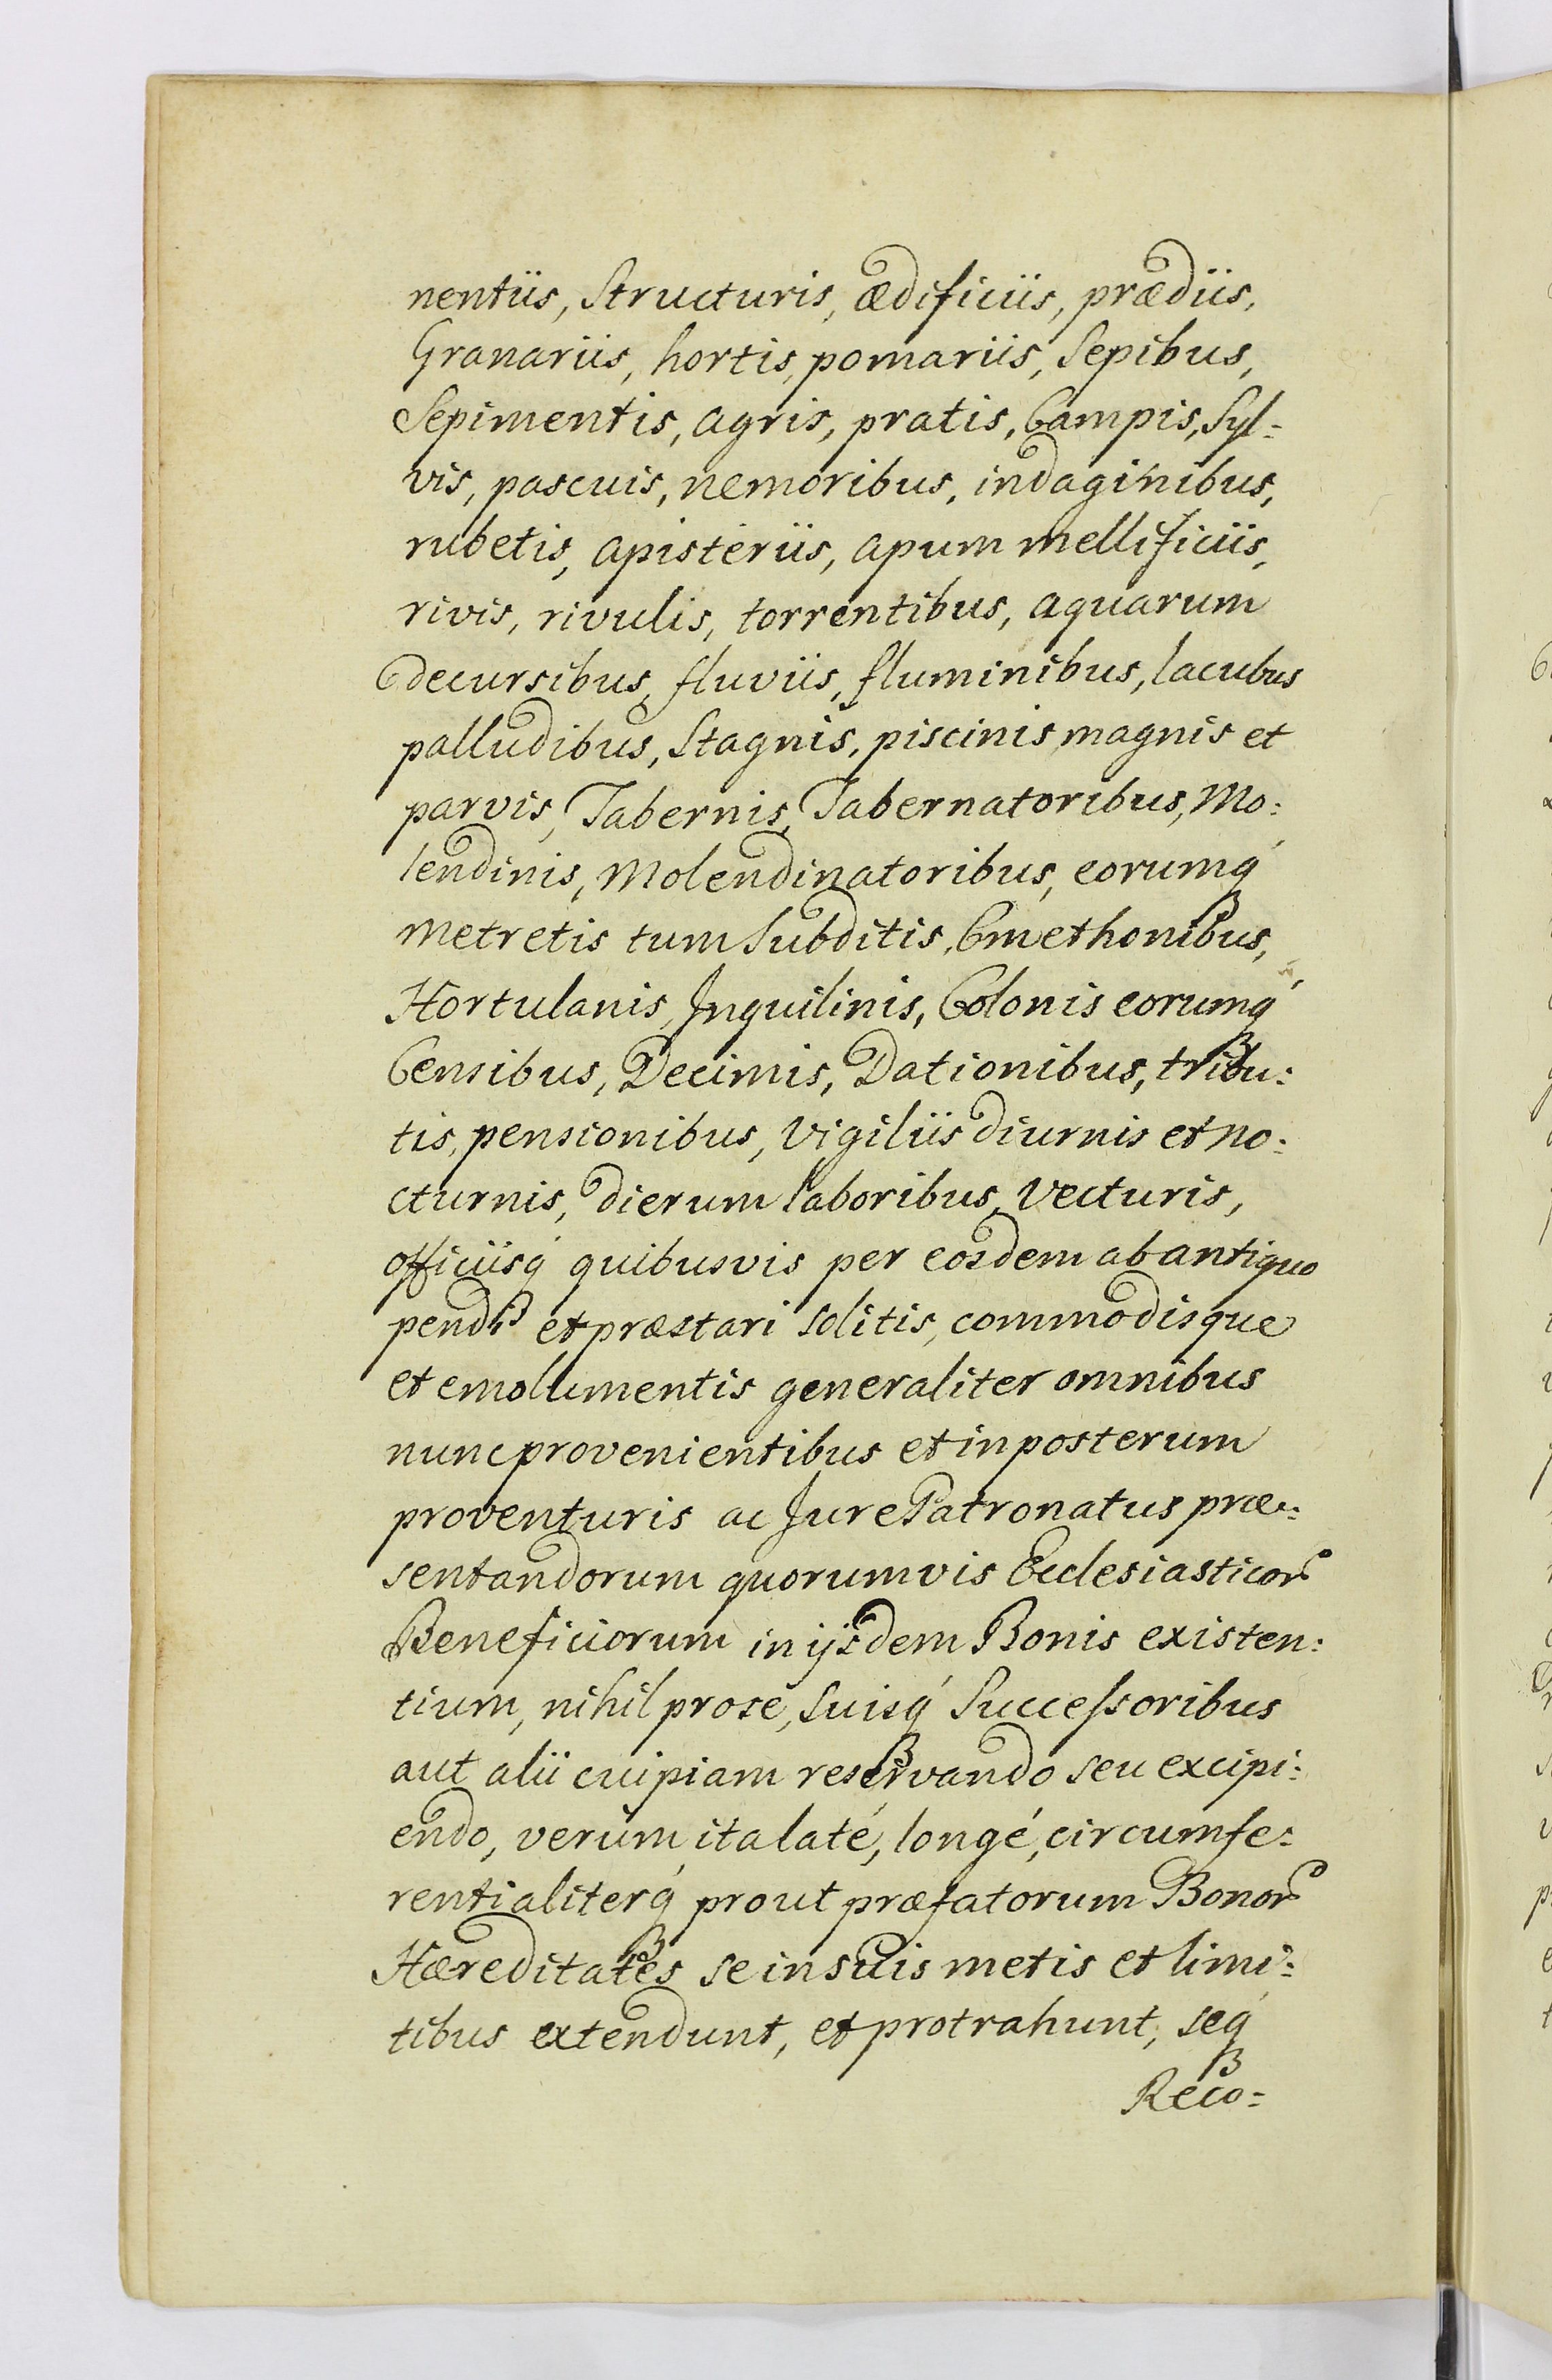 nentiis, Structuris, ædificiis, prædiis,
Granariis, hortis, pomariis, Sepibus,
Sepimentis, agris, pratis, Campis, Syl=
vis, pascuis, nemoribus, indaginibus,
rubetis, apisteriis, apum mellificiis,
rivis, rivulis, torrentibus, aquarum
decursibus, fluviis, fluminibus, lacubus
palludibus, Stagnis, piscinis magnis et
parvis, Tabernis, Tabernatoribus, Mo:
lendinis, Molendinatoribus, eorumq́ꝫ
metretis tum Subditis, Cmethonibus,
Hortulanis, Inquilinis, Colonis eorumq́ꝫ
Censibus, Decimis, Dationibus, tribu:
tis, pensionibus, Vigiliis diurnis et no:
cturnis, dierum laboribus, Vecturis,
officiisq́ꝫ quibusvis per eosdem ab antiquo
pendi et præstari solitis, commodisque
et emolumentis generaliter omnibus
nunc provenientibus et in posterum
proventuris ac Jure Patronatus præ:
sentandorum quorumvis Ecclesiasticorꝫ
Beneficiorum in ijsdem Bonis existen:
tium, nihil pro se, Suisq́ꝫ Succeſsoribus
aut alii cuipiam reservando seu excipi:
endo, verum ita laté, longé, circumfe:
rentialiterq́ꝫ prout præfatorum Bonorꝫ
Hæreditates se in suis metis et limi:
tibus extendunt, et protrahunt, seq́ꝫ
Reco=